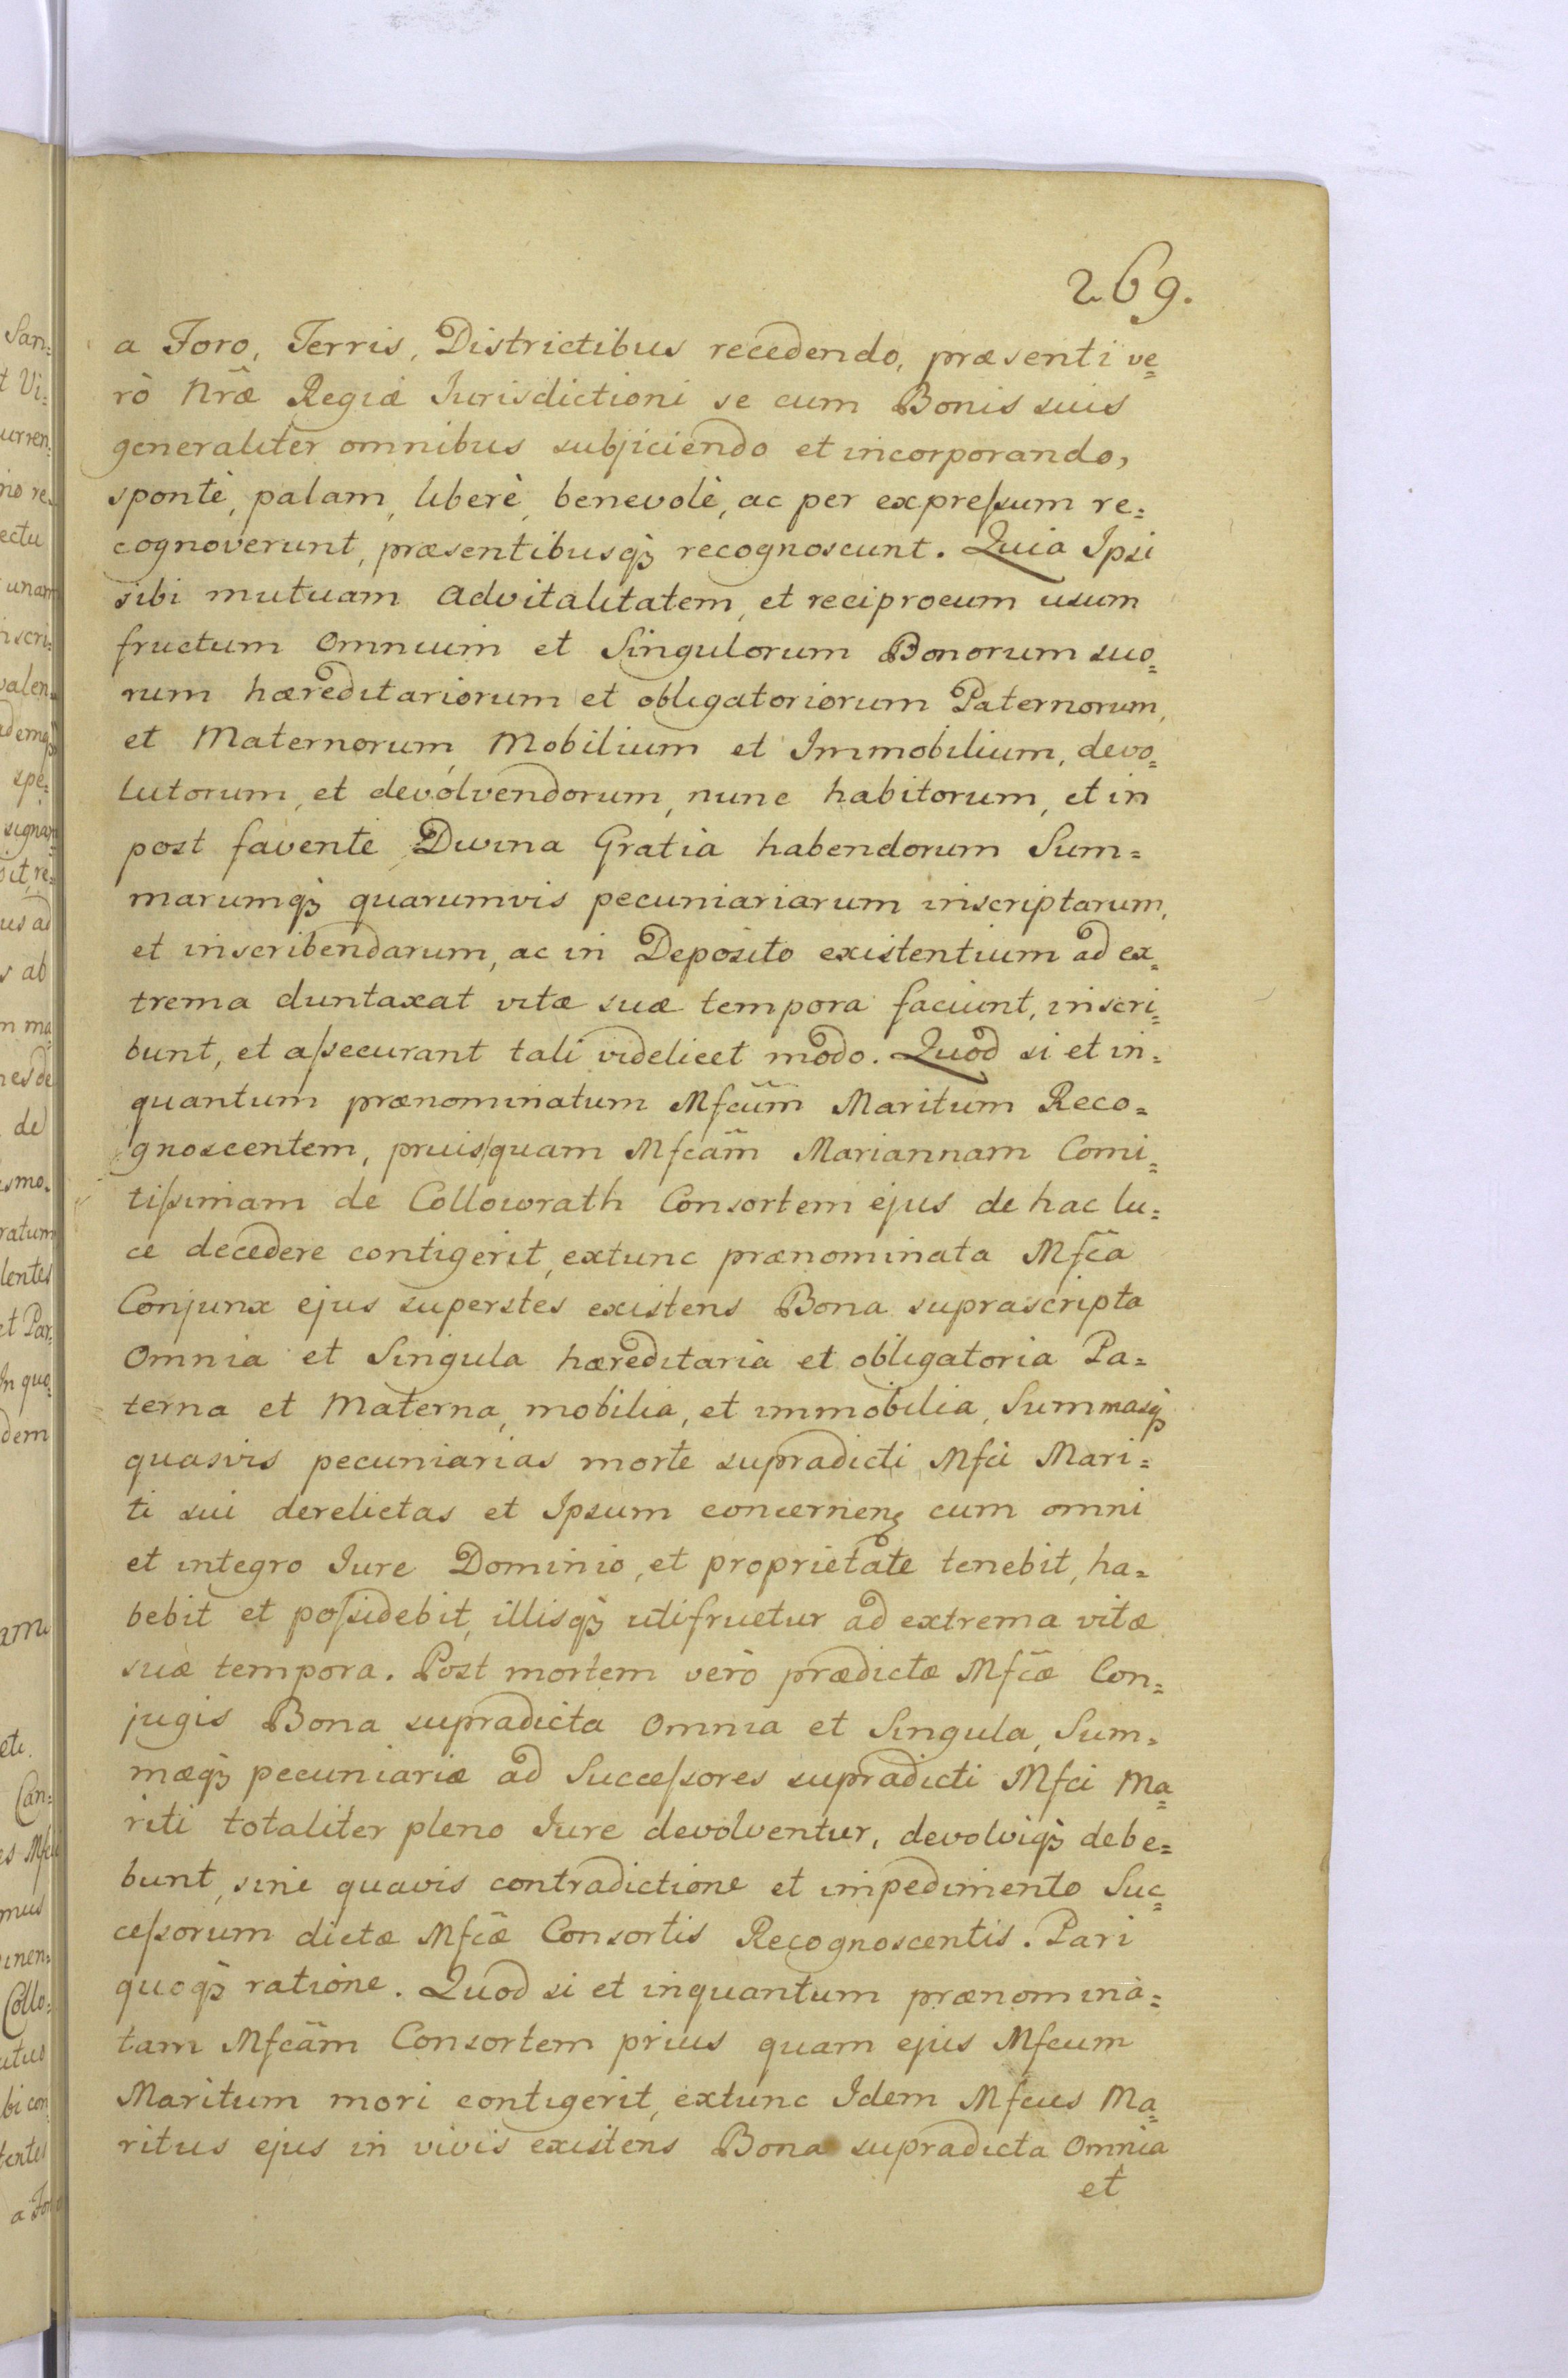 269.
a Foro, Terris, Districtibus recedendo, præsenti ve=
rò Nrã̃e Regiæ Jurisdictioni se cum Bonis suis
generaliter omnibus subjiciendo et incorporando,
spontè, palam, liberè, benevolè, ac per expreſsum re=
cognoverunt, præsentibusq̃ recognoscunt. Quia Ipsi
sibi mutuam advitalitatem, et reciprocum usum
fructum Omnium et Singulorum Bonorum suo=
rum hæreditariorum et obligatoriorum Paternorum,
et Maternorum, Mobilium et Immobilium, devo=
lutorum, et devolvendorum, nunc habitorum, et in
post favente Divina Gratia habendorum Sum=
marumq̃ quarumvis pecuniariarum inscriptarum,
et inscribendarum, ac in Deposito existentium ad ex=
trema duntaxat vitæ suæ tempora faciunt, inscri=
bunt, et aſsecurant tali videlicet modo. Quod si et in=
quantum prænominatum Mfcũm Maritum Reco=
gnoscentem, prius/quam Mfcãm Mariannam Comi=
tiſsimam de Collowrath Consortem ejus de hac lu=
ce decedere contigerit, extunc prænominata Mfc̃a
Conjunx ejus superstes existens Bona suprascripta
Omnia et Singula hæreditaria et obligatoria Pa=
terna et Materna, mobilia, et immobilia, Summasq̃
quasvis pecuniarias morte supradicti Mfci Mari=
ti sui derelictas et Ipsum concernenꝭ cum omni
et integro Jure Dominio, et proprietate tenebit, ha=
bebit et poſsidebit, illisq̃ utifruetur ad extrema vitæ
suæ tempora. Post mortem verò prædictæ Mfc̃æ Con=
jugis Bona supradicta Omnia et Singula, Sum=
mæq̃ pecuniariæ ad Succeſsores supradicti Mfci Ma=
riti totaliter pleno Jure devolventur, devolviq̃ debe=
bunt, sine quavis contradictione et impedimento Suc=
ceſsorum dictæ Mfc̃æ Consortis Recognoscentis. Pari
quoq̃ ratione. Quod si et inquantum prænomina=
tam Mfcãm Consortem prius quam ejus Mfcum
Maritum mori contigerit, extunc Idem Mfcus Ma=
ritus ejus in vivis existens Bona supradicta Omnia
et